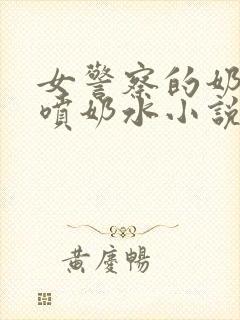 女警察的奶
噴奶水小說
黃慶暢